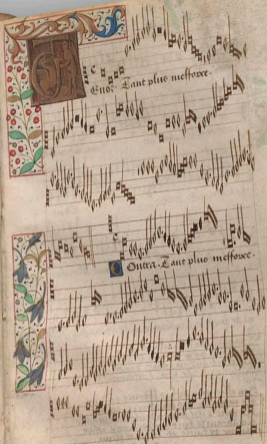 Tenor Tant plus mefforce.
Contra. Tant plus mefforce.